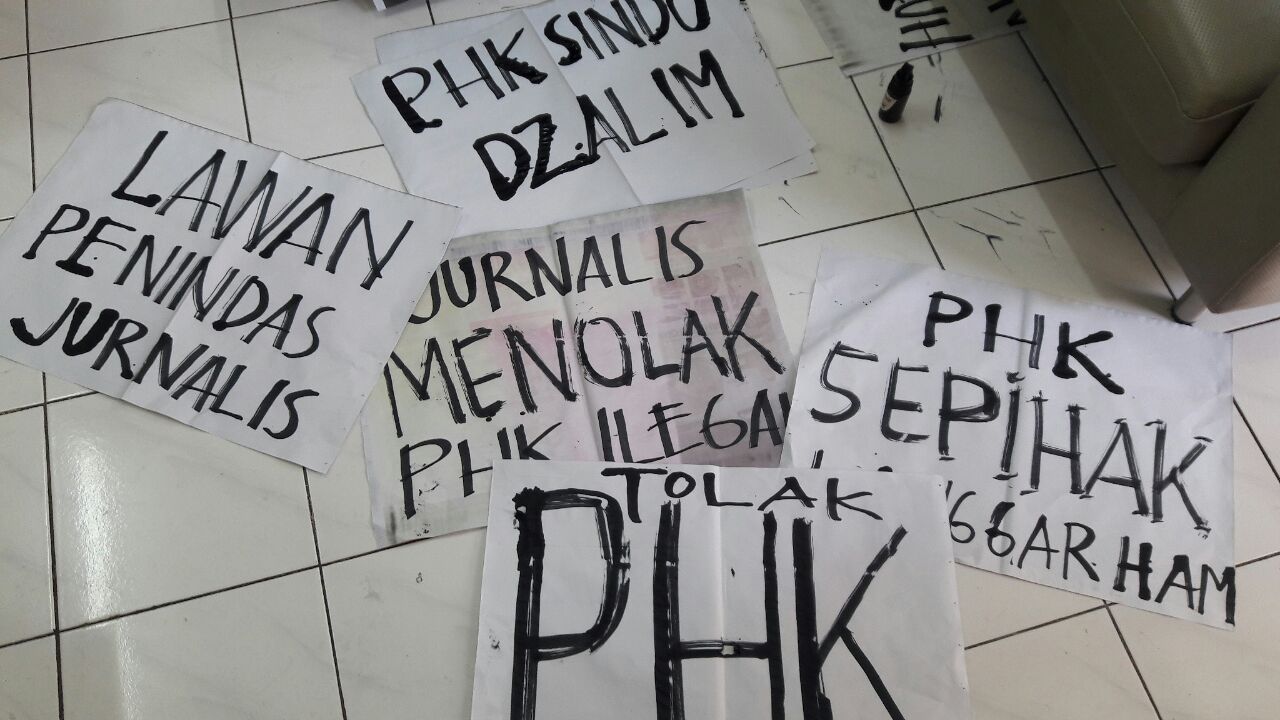 PHK SINDO
DZALIM
LAWAN
PENINDAS
JURNALIS
JURNALIS
MENOLAK
PHK ILEGAL
PHK
SEPIHAK
GGAR HAM
TOLAK
PHK